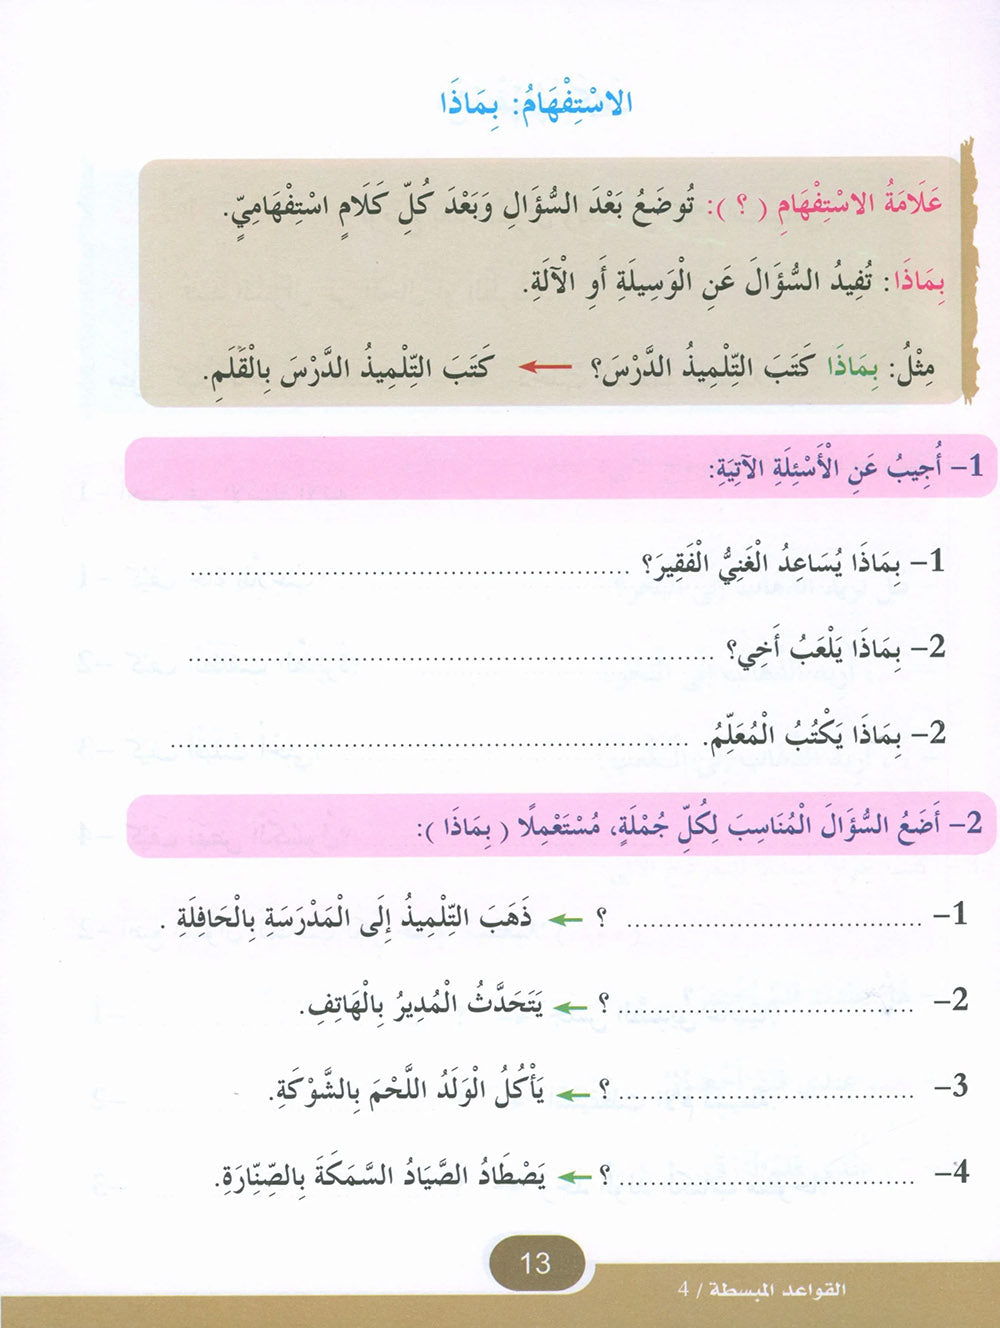 الاسْتِفْهَامُ: بِمَاذَا
عَلَامَةُ الاسْتِفْهَامِ ( ؟ ): تُوضَعُ بَعْدَ السُّؤَالِ وَبَعْدَ كُلِّ كَلَامٍ اسْتِفْهَامِيٍّ.
بِمَاذَا: تُفِيدُ السُّؤَالَ عَنِ الْوَسِيلَةِ أَوِ الْآلَةِ.
مِثْلُ: بِمَاذَا كَتَبَ التِّلْمِيذُ الدَّرْسَ؟ ← كَتَبَ التِّلْمِيذُ الدَّرْسَ بِالْقَلَمِ.
1- أُجِيبُ عَنِ الْأَسْئِلَةِ الآتِيَةِ:
1- بِمَاذَا يُسَاعِدُ الْغَنِيُّ الْفَقِيرَ؟ ........................................
2- بِمَاذَا يَلْعَبُ أَخِي؟ ........................................
2- بِمَاذَا يَكْتُبُ الْمُعَلِّمُ. ........................................
2- أَضَعُ السُّؤَالَ الْمُنَاسِبَ لِكُلِّ جُمْلَةٍ، مُسْتَعْمِلًا ( بِمَاذَا ):
1- ........................................ ؟ ← ذَهَبَ التِّلْمِيذُ إِلَى الْمَدْرَسَةِ بِالْحَافِلَةِ .
2- ........................................ ؟ ← يَتَحَدَّثُ الْمُدِيرُ بِالْهَاتِفِ.
3- ........................................ ؟ ← يَأْكُلُ الْوَلَدُ اللَّحْمَ بِالشَّوْكَةِ.
4- ........................................ ؟ ← يَصْطَادُ الصَّيَادُ السَّمَكَةَ بِالصِّنَّارَةِ.
13
القواعد المبسطة / 4